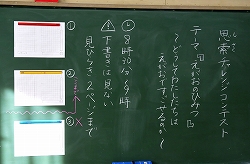 思索チャレンジコンテスト
テーマ「えがおのひみつ」
〜どうしてわたしたちは
えがおですごせるのか〜
8時30分〜9時
下書きは見ない
見ひらき2ページまで
①
②
③